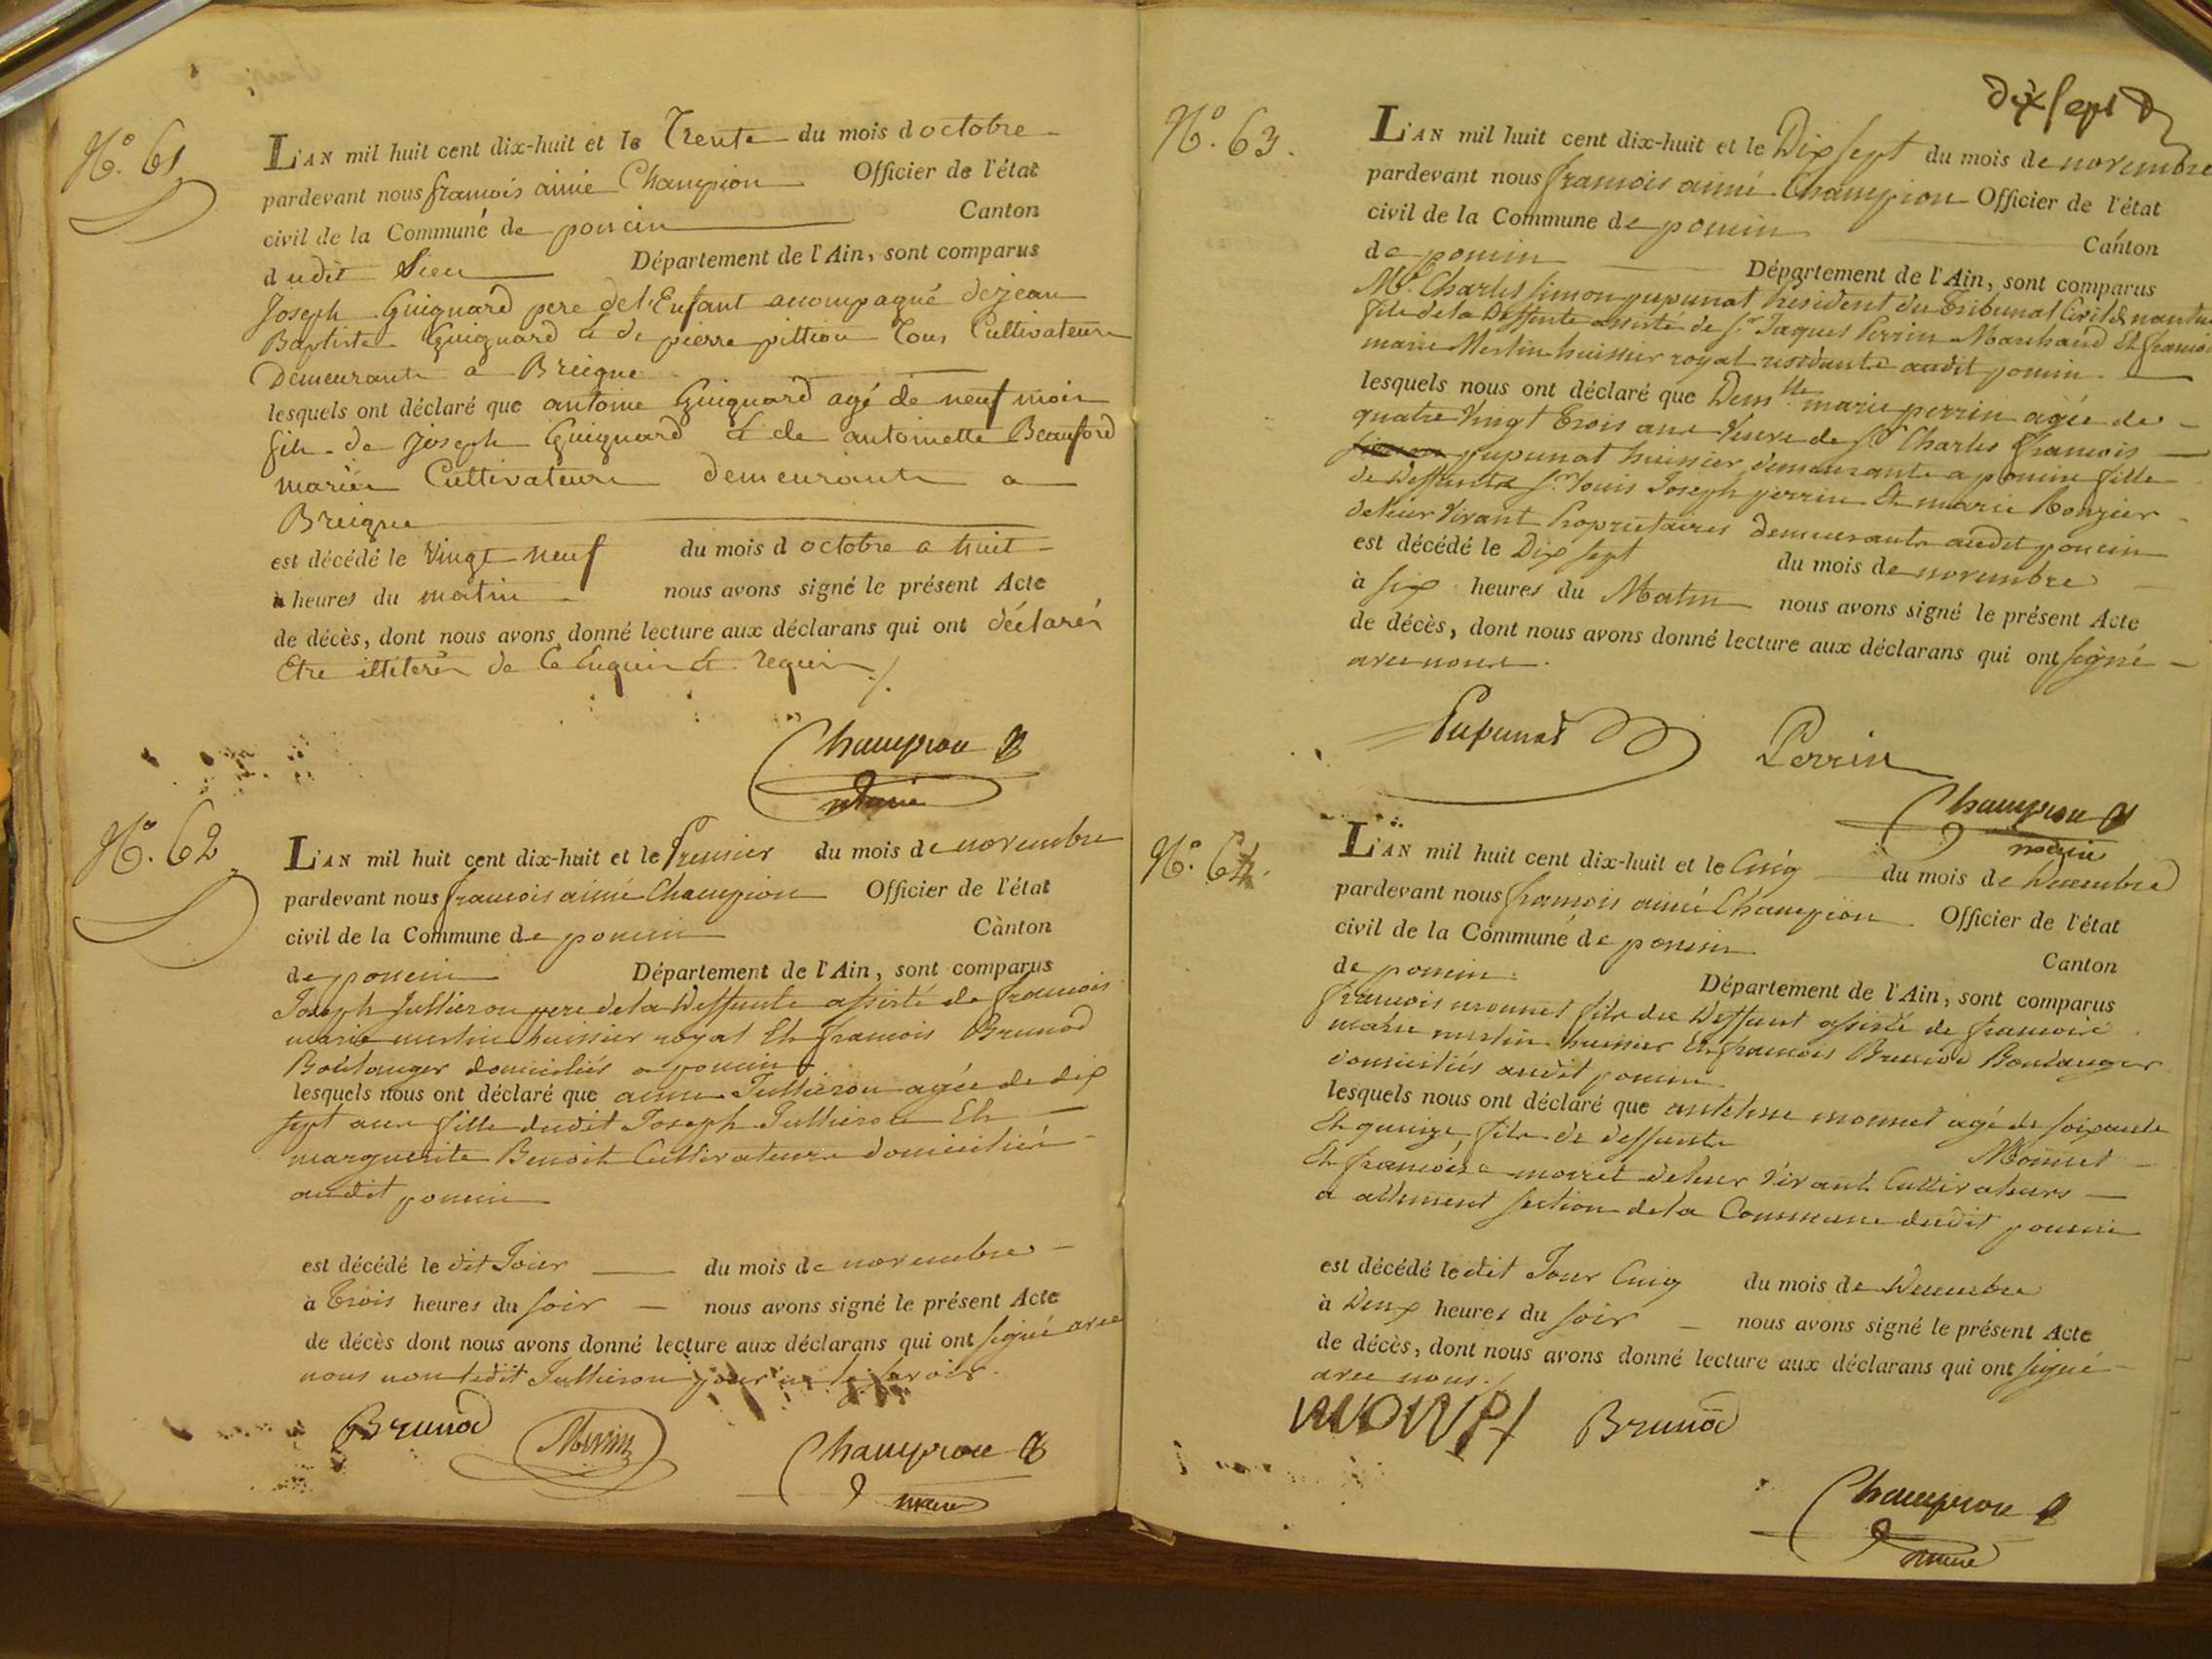 N.º 61
L'AN mil huit cent dix-huit et le Trente du mois d octobre
pardevant nous francois aimé Champion Officier de l'état
civil de la Commune de poncin Canton
dudit Lieu Département de l'Ain, sont comparus
Joseph Guignard pere de l'Enfant accompagné de jean
Baptiste Guignard & de pierre pittion Tous Cultivateurs
Demeurants a Breigne
lesquels ont déclaré que antoine Guignard agé de neuf mois
fils de Joseph Guignard & de antoinette Beauford
mariés Cultivateurs demeurants a
Breigne
est décédé le Vingt neuf du mois d octobre a huit
à heures du matin nous avons signé le présent Acte
de décès, dont nous avons donné lecture aux déclarans qui ont déclarés
Etre illiterés de ce Enquis & requis ./.
Champion
maire
N.º 62
L'AN mil huit cent dix-huit et le Premier du mois de novembre
pardevant nous francois aimé Champion Officier de l'état
civil de la Commune de poncin Canton
de poncin Département de l'Ain, sont comparus
Joseph Jullieron pere de la Deffunte assisté de francois
marie merlin huissier royal Et francois Brunod
Boulanger domiciliés a poncin
lesquels nous ont déclaré que anne Jullieron agée de dix
sept ans fille dudit Joseph Jullieron Et
marguerite Benoit Cultivateurs domiciliés
audit poncin
est décédé le dit Jour du mois de novembre
à Trois heures du soir nous avons signé le présent Acte
de décès dont nous avons donné lecture aux déclarans qui ont signé avec
nous non ledit Jullieron pour ne le savoir.
Brunod Merlin Champion
maire
dix sept
N.º 63.
L'AN mil huit cent dix-huit et le Dix sept du mois de novembre
pardevant nous francois aimé Champion Officier de l'état
civil de la Commune de poncin Canton
de poncin Département de l'Ain, sont comparus
Mr. Charles Simon pupunat President du Tribunal Civil de nantua
fils de la Deffunte assisté de Sr. Jaques Perrin Marchand Et francois
marie Merlin huissier royal residants audit poncin.
lesquels nous ont déclaré que Demlle marie perrin agée de
quatre Vingt Trois ans Veuve de Sr. Charles francois
pupunat huissier demeurante a poncin fille
de Deffunts Sr. Louis Joseph perrin Et marie Rougier
de leur Vivant Proprietaires demeurants audit poncin
est décédé le Dix sept du mois de novembre
à six heures du Matin nous avons signé le présent Acte
de décès, dont nous avons donné lecture aux déclarans qui ont signé
avec nous.
Pupunat Perrin
Champion
maire
N.º 64.
L'AN mil huit cent dix-huit et le Cinq du mois de Decembre
pardevant nous francois aimé Champion Officier de l'état
civil de la Commune de poncin Canton
de poncin Département de l'Ain, sont comparus
francois monnet fils du Deffunt assisté de francois
marie merlin huissier Et francois Brunod Boulanger
domiciliés audit poncin
lesquels nous ont déclaré que antelme monnet agé de soixante
Et quinze fils de deffunts Monnet
Et francoise morret de leur Vivant Cultivateurs
a allement section de la Commune dudit poncin
est décédé le dit Jour Cinq du mois de Decembre
à Deux heures du soir nous avons signé le présent Acte
de décès, dont nous avons donné lecture aux déclarans qui ont signé
avec nous./
MONNET Brunod
Champion
maire